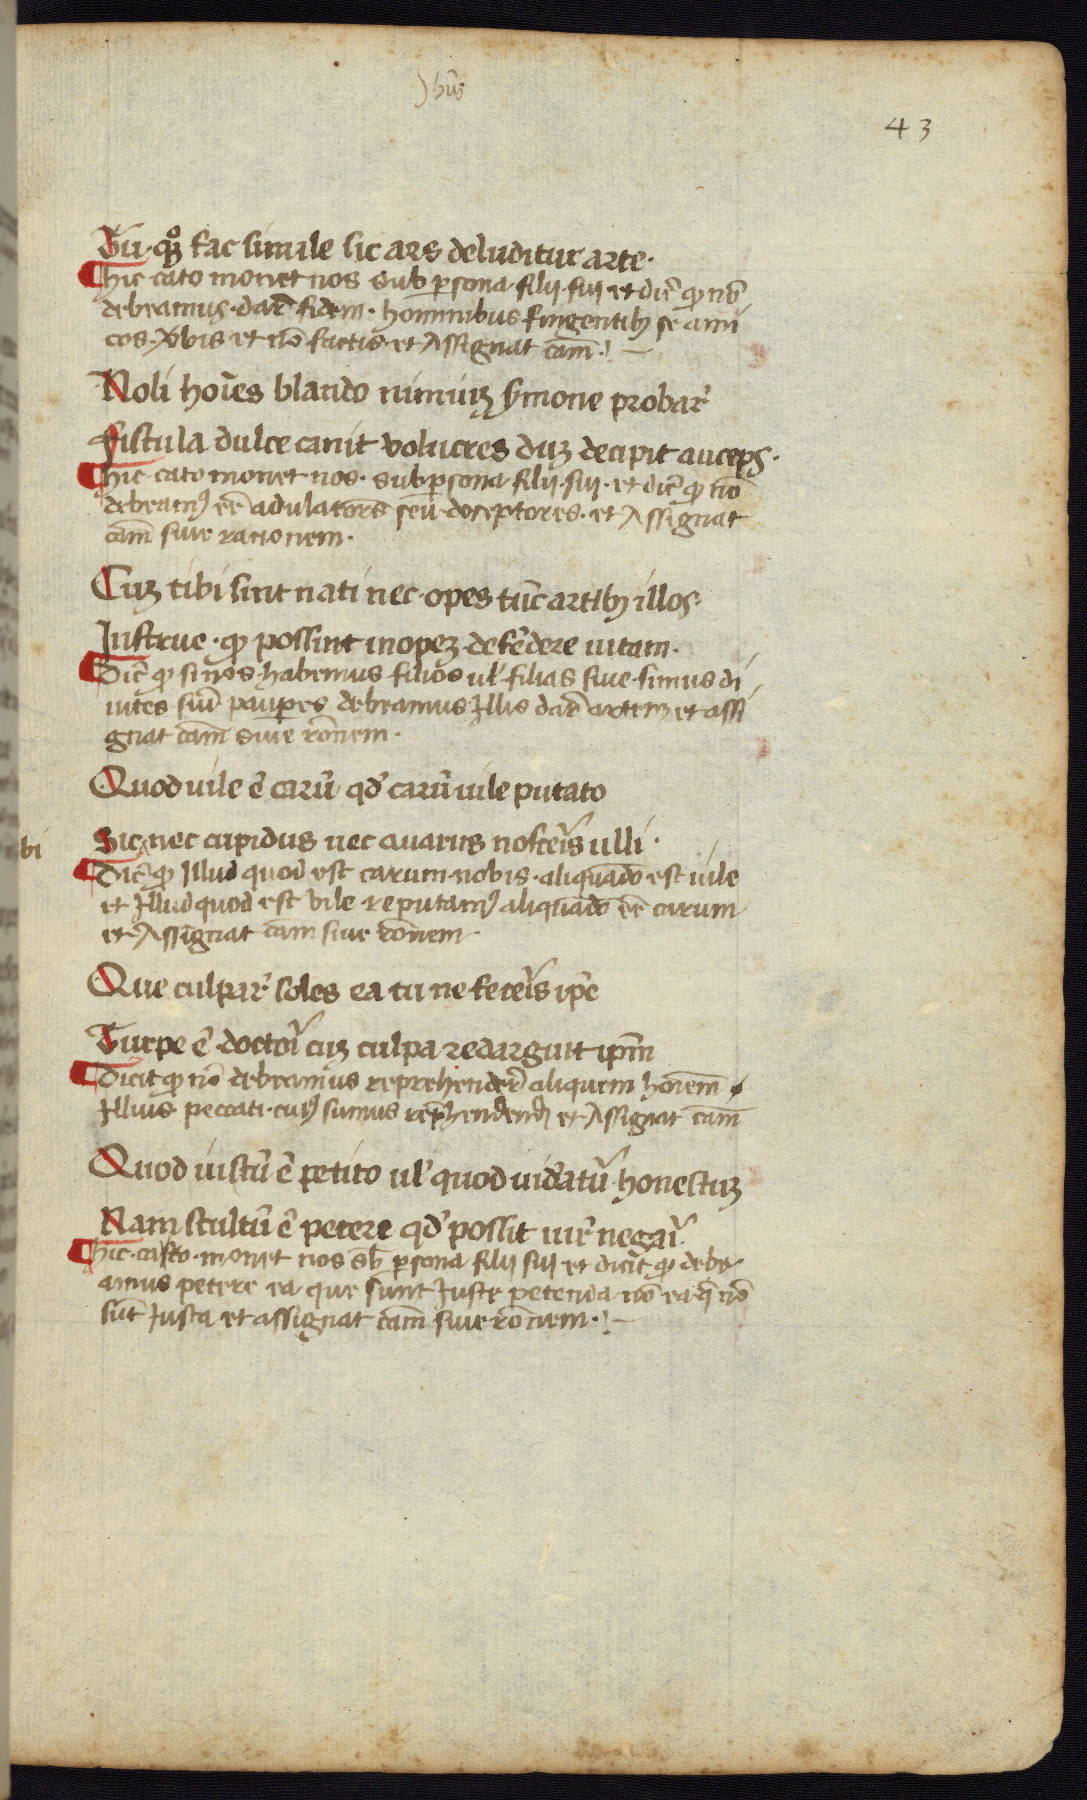 Jhūs
43
Tu · qq̊ fac simile sic ars deluditur arte ·
hic cato monet nos sub p̲sona filij suj et dic̄ ꝙ nō
debeamus · dar̄e fidem · hominibus fingentibꝫ se ami
cos · v̄bis et nō factis et Assignat cām · ! —
Noli hoīes blando nimiuꝫ s̄mone probar̄
Fistula dulce canit volucres duꝫ decipit auceps ·
hic cato monet nos · sub p̲sona filij · suj · et dic̄ ꝙ nō
debeamꝰ eē adulator̄s seu deceptores · et Assignat
cām siue racionem ·
Cuꝫ tibi sint nati nec · opes tūc artibꝫ illos ·
Instrue · ꝙ possint inopeꝫ defēdere uitam ·
Dic̄ ꝙ si nos habemus filios ul̄ filias siue · simus di
uites siū paup̲es debeamus Illis dar̄ artem et assi
gnat cām siue rōnem ·
Quod uile ē carū qd̄ carū uile putato
bi
Sic nec cupidus nec auarus nosceīs ulli ·
Dic̄ ꝙ Illud quod est carum nobis · aliquādo est uile
et Illud quod est vile reputamꝰ aliquādo eē carum
et Assignat cām siue rōnem ·
Que culpar̄ soles ea tu ne feceīs ip̄e
Turpe ē doctoī cuꝫ culpa redarguit ip̄m
Dicit ꝙ nō debeamus reprehender̄ aliquem hoīem
Illius peccati · cuiꝰ sumus rep̄hendendj et Assignat cām
Quod iustū ē petito ul̄ quod uideatū honestuꝫ
Nam stultū ē petere qd̄ possit iur̄ negaī ·
hic · cato · monet nos sb̄ p̲sona filij suj et dicit ꝙ debe
amus petere ea que sunt Juste petenda nō ea q̄ nō
sūt Justa et assignat cām siue rōnem · ! —